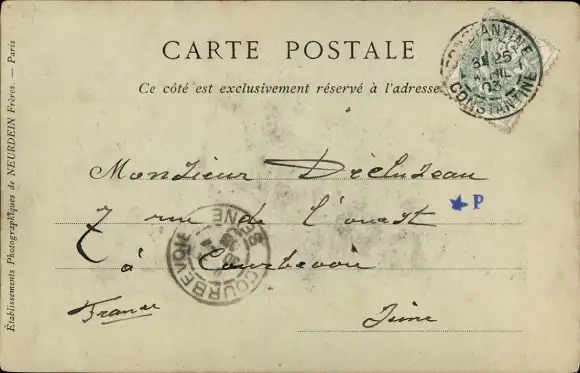 CARTE POSTALE
Ce côté est exclusivement réservé à l'adresse
CONSTANTINE
25
AVRIL
03
CONSTANTINE
Monsieur
7 rue de l'ouest
★ P
à Courbevoie
France
Seine
COURBEVOIE
SEINE
Établissements Photographiques de NEURDEIN Frères. — Paris